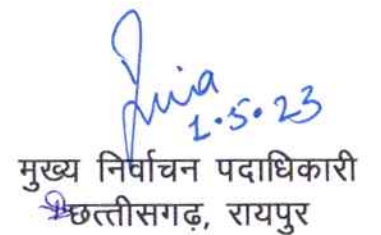 1.5.23
मुख्य निर्वाचन पदाधिकारी
छत्तीसगढ़, रायपुर